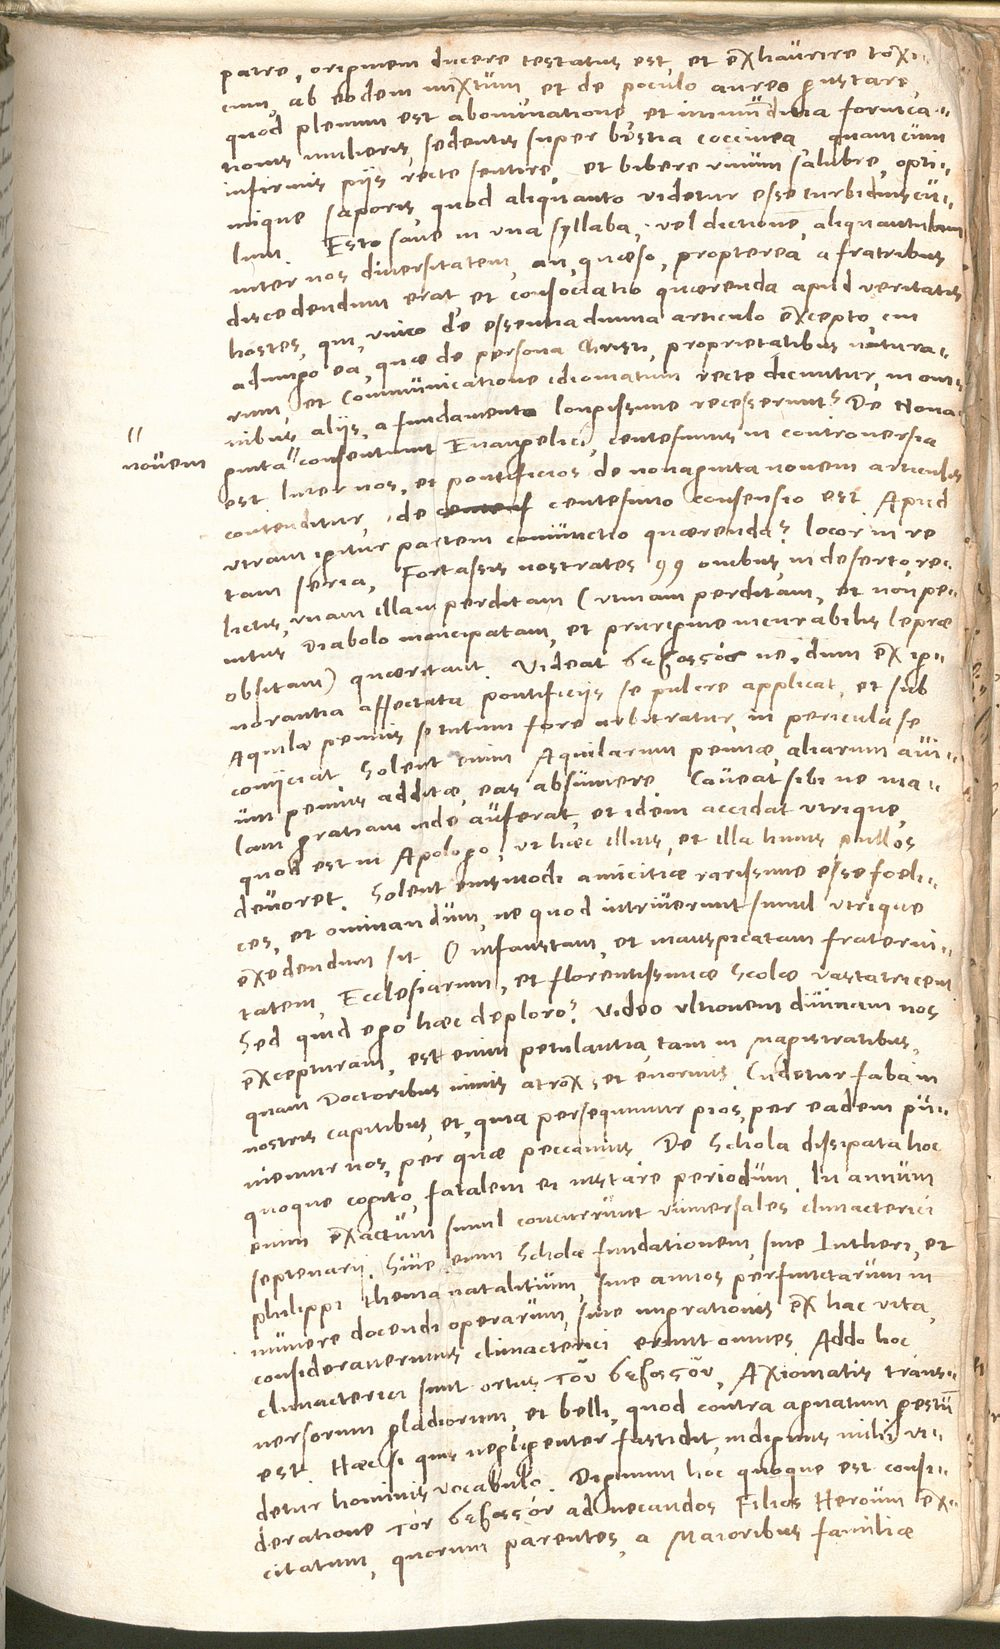 patre, originem ducere testatus est, et exhaurire toxi-
cum, ab eodem mixtum, et de poculo aureo gustare,
quod plenum est abominatione, et immunditia fornica-
tionis mulieris, sedentis super bestia coccinea, quam cum
infirmis piis recte sentire, et bibere vinum salubre, opti-
mique saporis, quod aliquanto videtur esse turbidiuscu-
lum. Esto sane in vna syllaba, vel dictione, aliquantulum
inter nos diuersitatem, an, quæso, propterea a fratribus
discedendum erat, et consociatio quærenda apud veritatis
hostes, qui, vnico de essentia diuina articulo excepto, cui
adiungo ea, quæ de persona Christi, proprietatibus natura-
rum, et Communicatione idiomatum recte dicuntur, in om-
nibus aliis, a fundamento longissime recesserunt? De Nona-
ginta" consentiunt Euangelici, centesimus in controuersia
" nouem
est. Inter nos, et pontificios de nonaginta nouem articulis
contenditur, de centesimo consensio est. Apud
vtram igitur partem coniunctio quærenda? locor in re
tam seria, Fortassis nostrates 99 ouibus, in deserto re-
lictis, vnam illam perditam (vtinam perditam, et non pe-
nitus Diabolo mancipatam, et prurigine incurabilis lepræ
obsitam) quæritant. Videat ne, dum ex ig-
norantia affectata pontificiis se pulcre applicat, et sub
Aquilæ pennis se tutum fore arbitratur, in pericula se
coniiciat. Solent enim Aquilarum pennæ, aliarum aui-
um pennis additæ, eas absumere. Caueat sibi ne ma-
lam gratiam inde auferat, et idem accidat vtrique,
quod est in Apologo, vt hæc illius, et illa huius pullos
deuoret. Solent eiusmodi amicitiæ rarissime esse foeli-
ces, et ominandum, ne quod intriuerunt simul vtrique
exedendum sit. O infaustam, et inauspicatam fraterni-
tatem, Ecclesiarum, et florentissimæ Scolæ vastatricem.
Sed quid ego hæc deploro? Video vltionem diuinam nos
excepturam, est enim petulantia, tam in magistratibus,
quam Doctoribus nimis atrox, et enormis. Cudetur faba in
nostris capitibus, et, quia persequimur pios, per eadem pu-
niemur nos, per quæ peccamus. De Schola dissipata hoc
quoque cogito, fatalem ei instare periodum. In annum
enim exactum simul concurrunt vniuersales climacterici
septenarii. Siue enim Scholæ fundationem, siue Lutheri, et
philippi thema natalitium, siue annos perfunctarum in
munere docendi operarum, siue migrationis ex hac vita,
considerauerimus climacterici erunt omnes. Addo hoc
climacterici sunt ortus τοῦ, Axiomatis trans-
uersorum gladiorum, et belli, quod contra agnatum gestum
est. Hæc si quis negligenter fastidit, indignus mihi vi-
detur hominis vocabulo. Dignum hoc quoque est consi-
deratione τὸν ad necandos Filios Heroum ex-
citatum, quorum parentes, a Maioribus familiæ